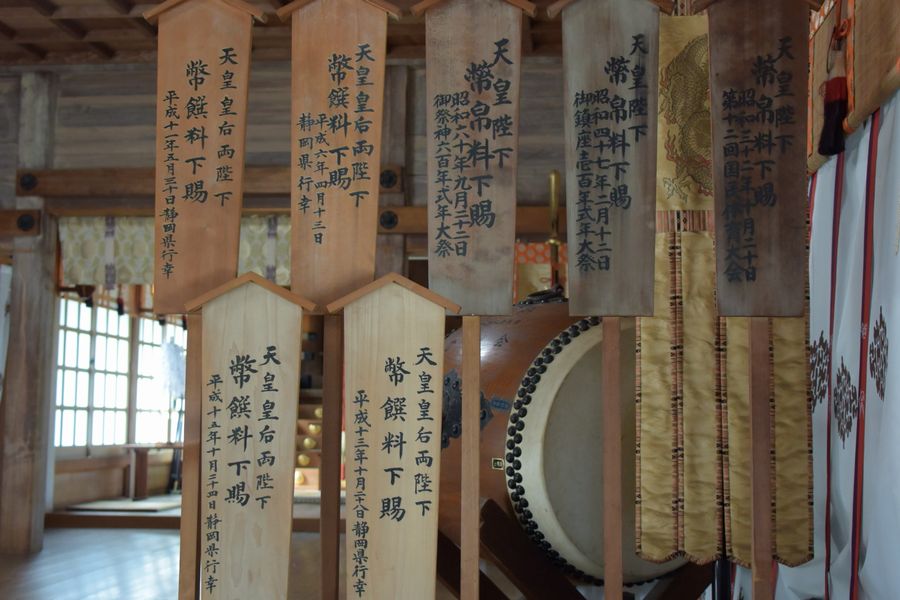 天皇陛下
幣帛料下賜
昭和三十二年十月二十日
第十二回国民体育大会
天皇陛下
幣帛料下賜
昭和四十七年二月十二日
御鎮座壱百年式年大祭
天皇陛下
幣帛料下賜
昭和六十年九月二十二日
御祭神六百年式年大祭
天皇皇后両陛下
幣饌料下賜
平成六年四月十三日
静岡県行幸
天皇皇后両陛下
幣饌料下賜
平成十一年五月三十日静岡県行幸
天皇皇后両陛下
幣饌料下賜
平成十三年十月二十八日静岡県行幸
天皇皇后両陛下
幣饌料下賜
平成十五年十月二十四日静岡県行幸